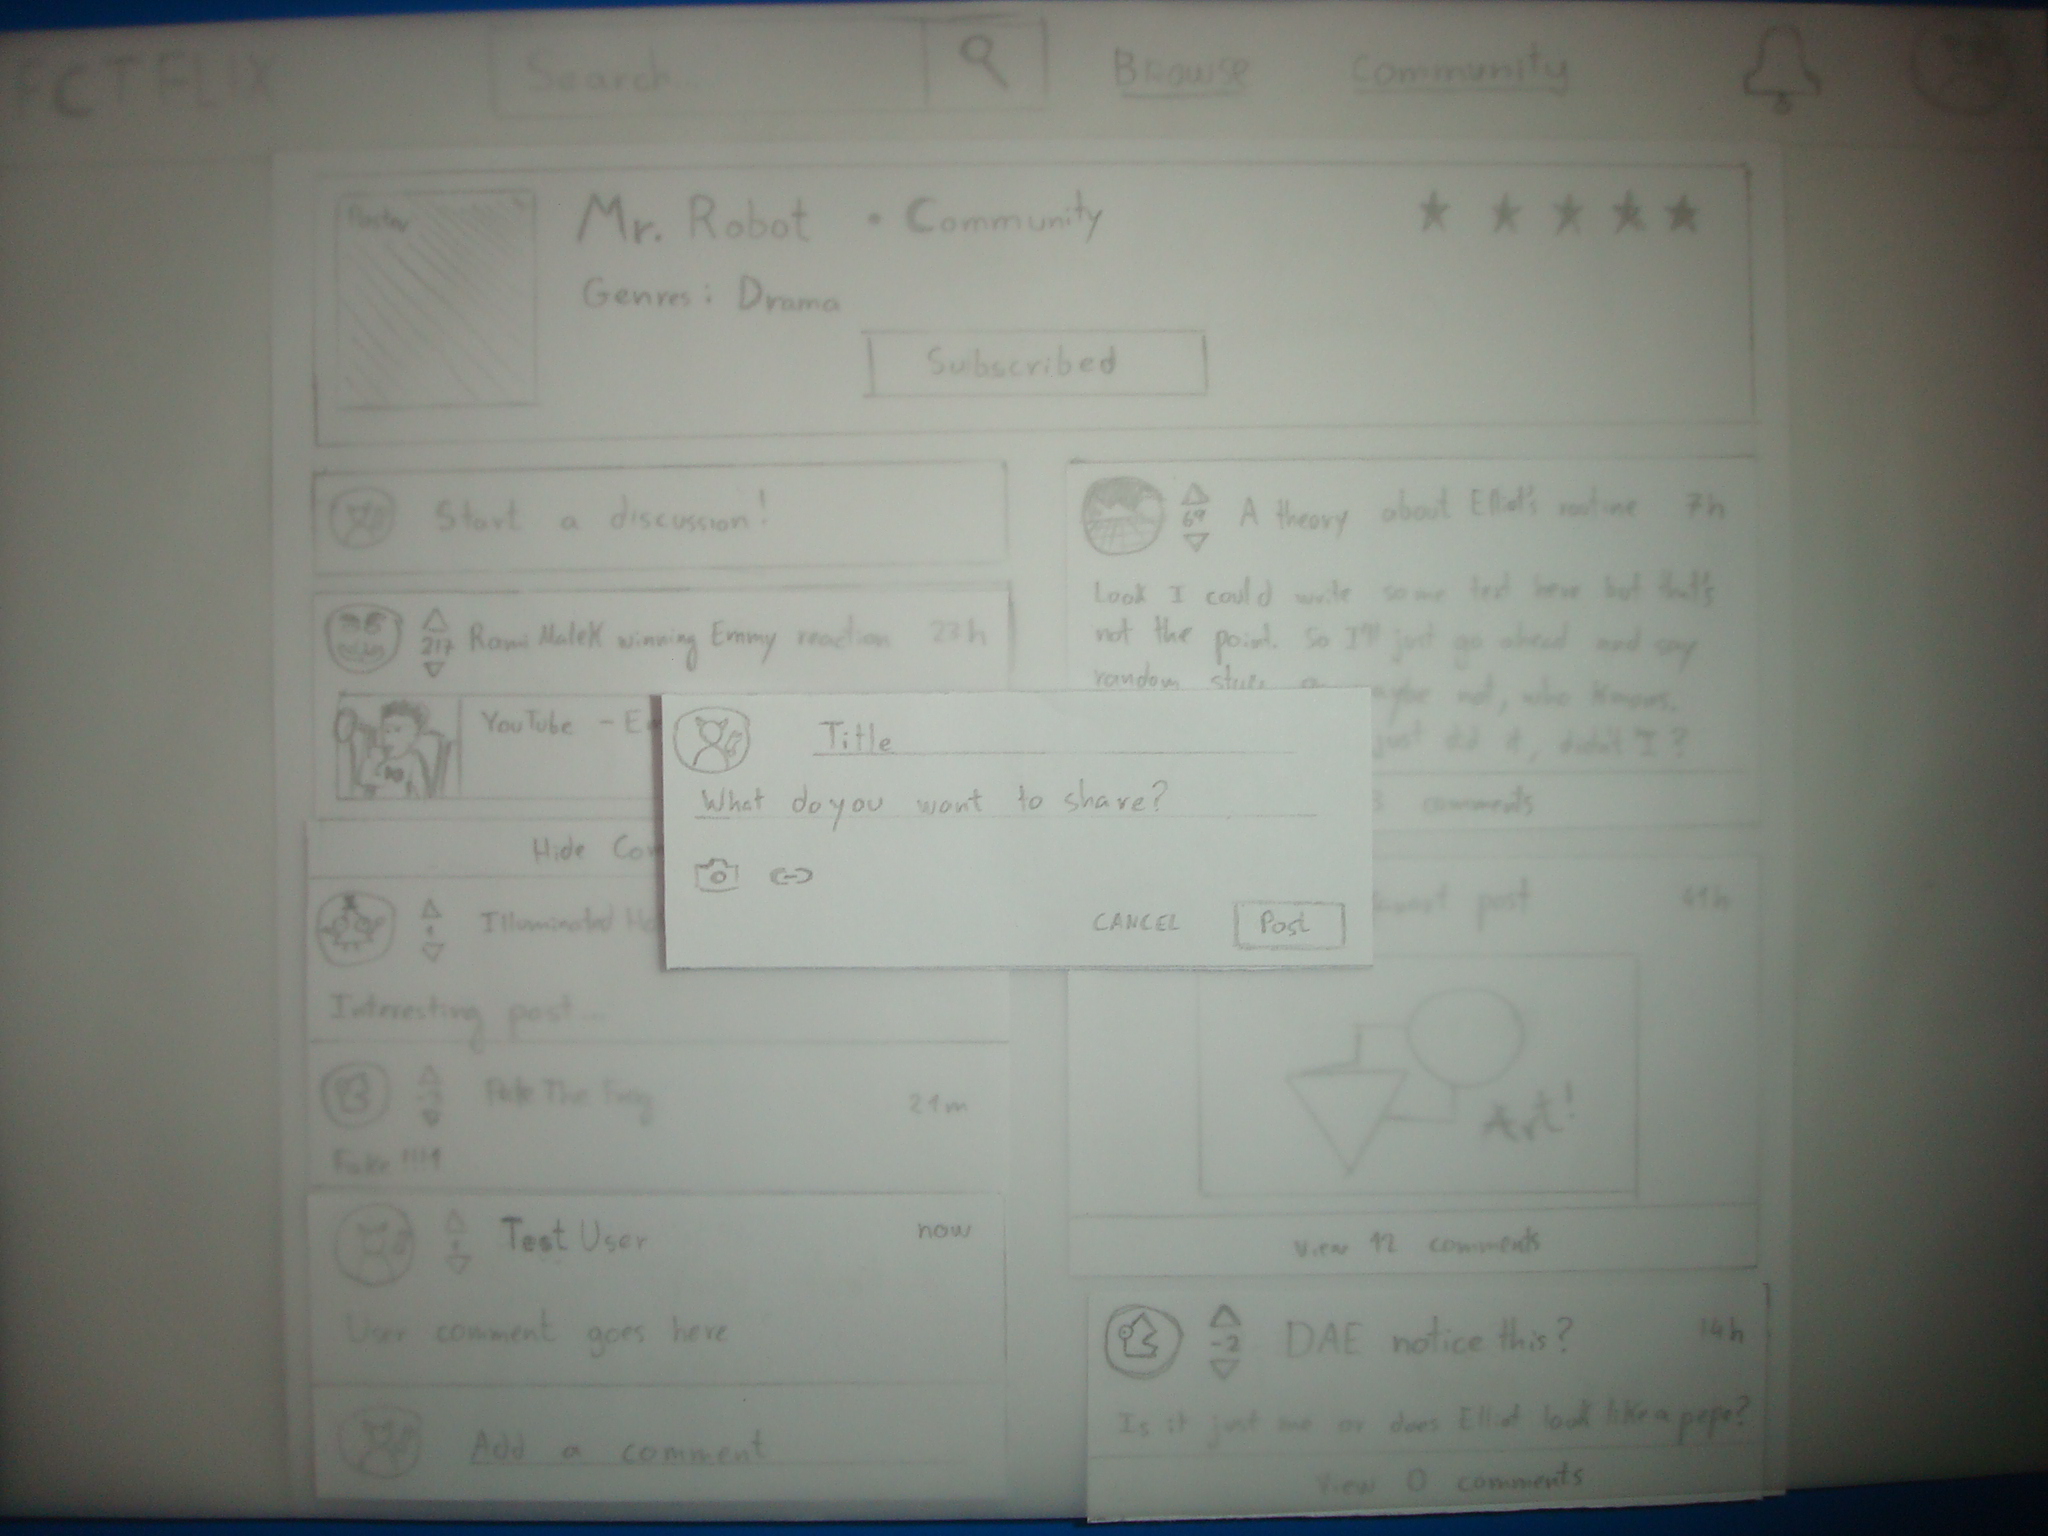 FCTFLIX
Search...
Browse
Community
Poster
Mr. Robot • Community
Genres: Drama
Subscribed
Start a discussion!
217
Rami Malek winning Emmy reaction 23h
YouTube - E
Hide Co
1
Illuminated
Interesting post...
The Frog 21m
Fake !!!!1
1
Test User now
User comment goes here
Add a comment
69
A theory about Elliot's routine 7h
Look I could write some text here but that's
not the point. So I'll just go ahead and say
random maybe not, who knows.
just did it, didn't I?
comments
post
Art!
View 12 comments
-2
DAE notice this? 14h
Is it just me or does Elliot look like a pepe?
View 0 comments
Title
What do you want to share?
CANCEL
Post